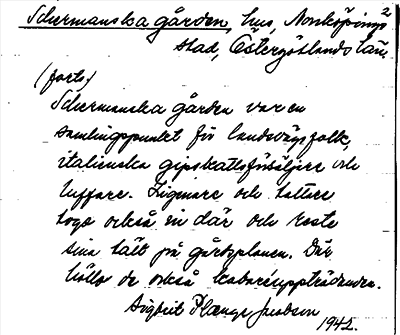 Schermanska gården, hus, Norrköpings 2
stad, Östergötlands län.
(forts)
Schermanska gården var en
samlingspunkt för landsvägsfolk,
italienska gipskattsförsäljare och
luffare. Zigenare och tattare
togo också in där och reste
sina tält på gårdsplanen. Där
höllo de också kabaréuppträdanden.
Sigbrit Plænge Jacobson
1942.